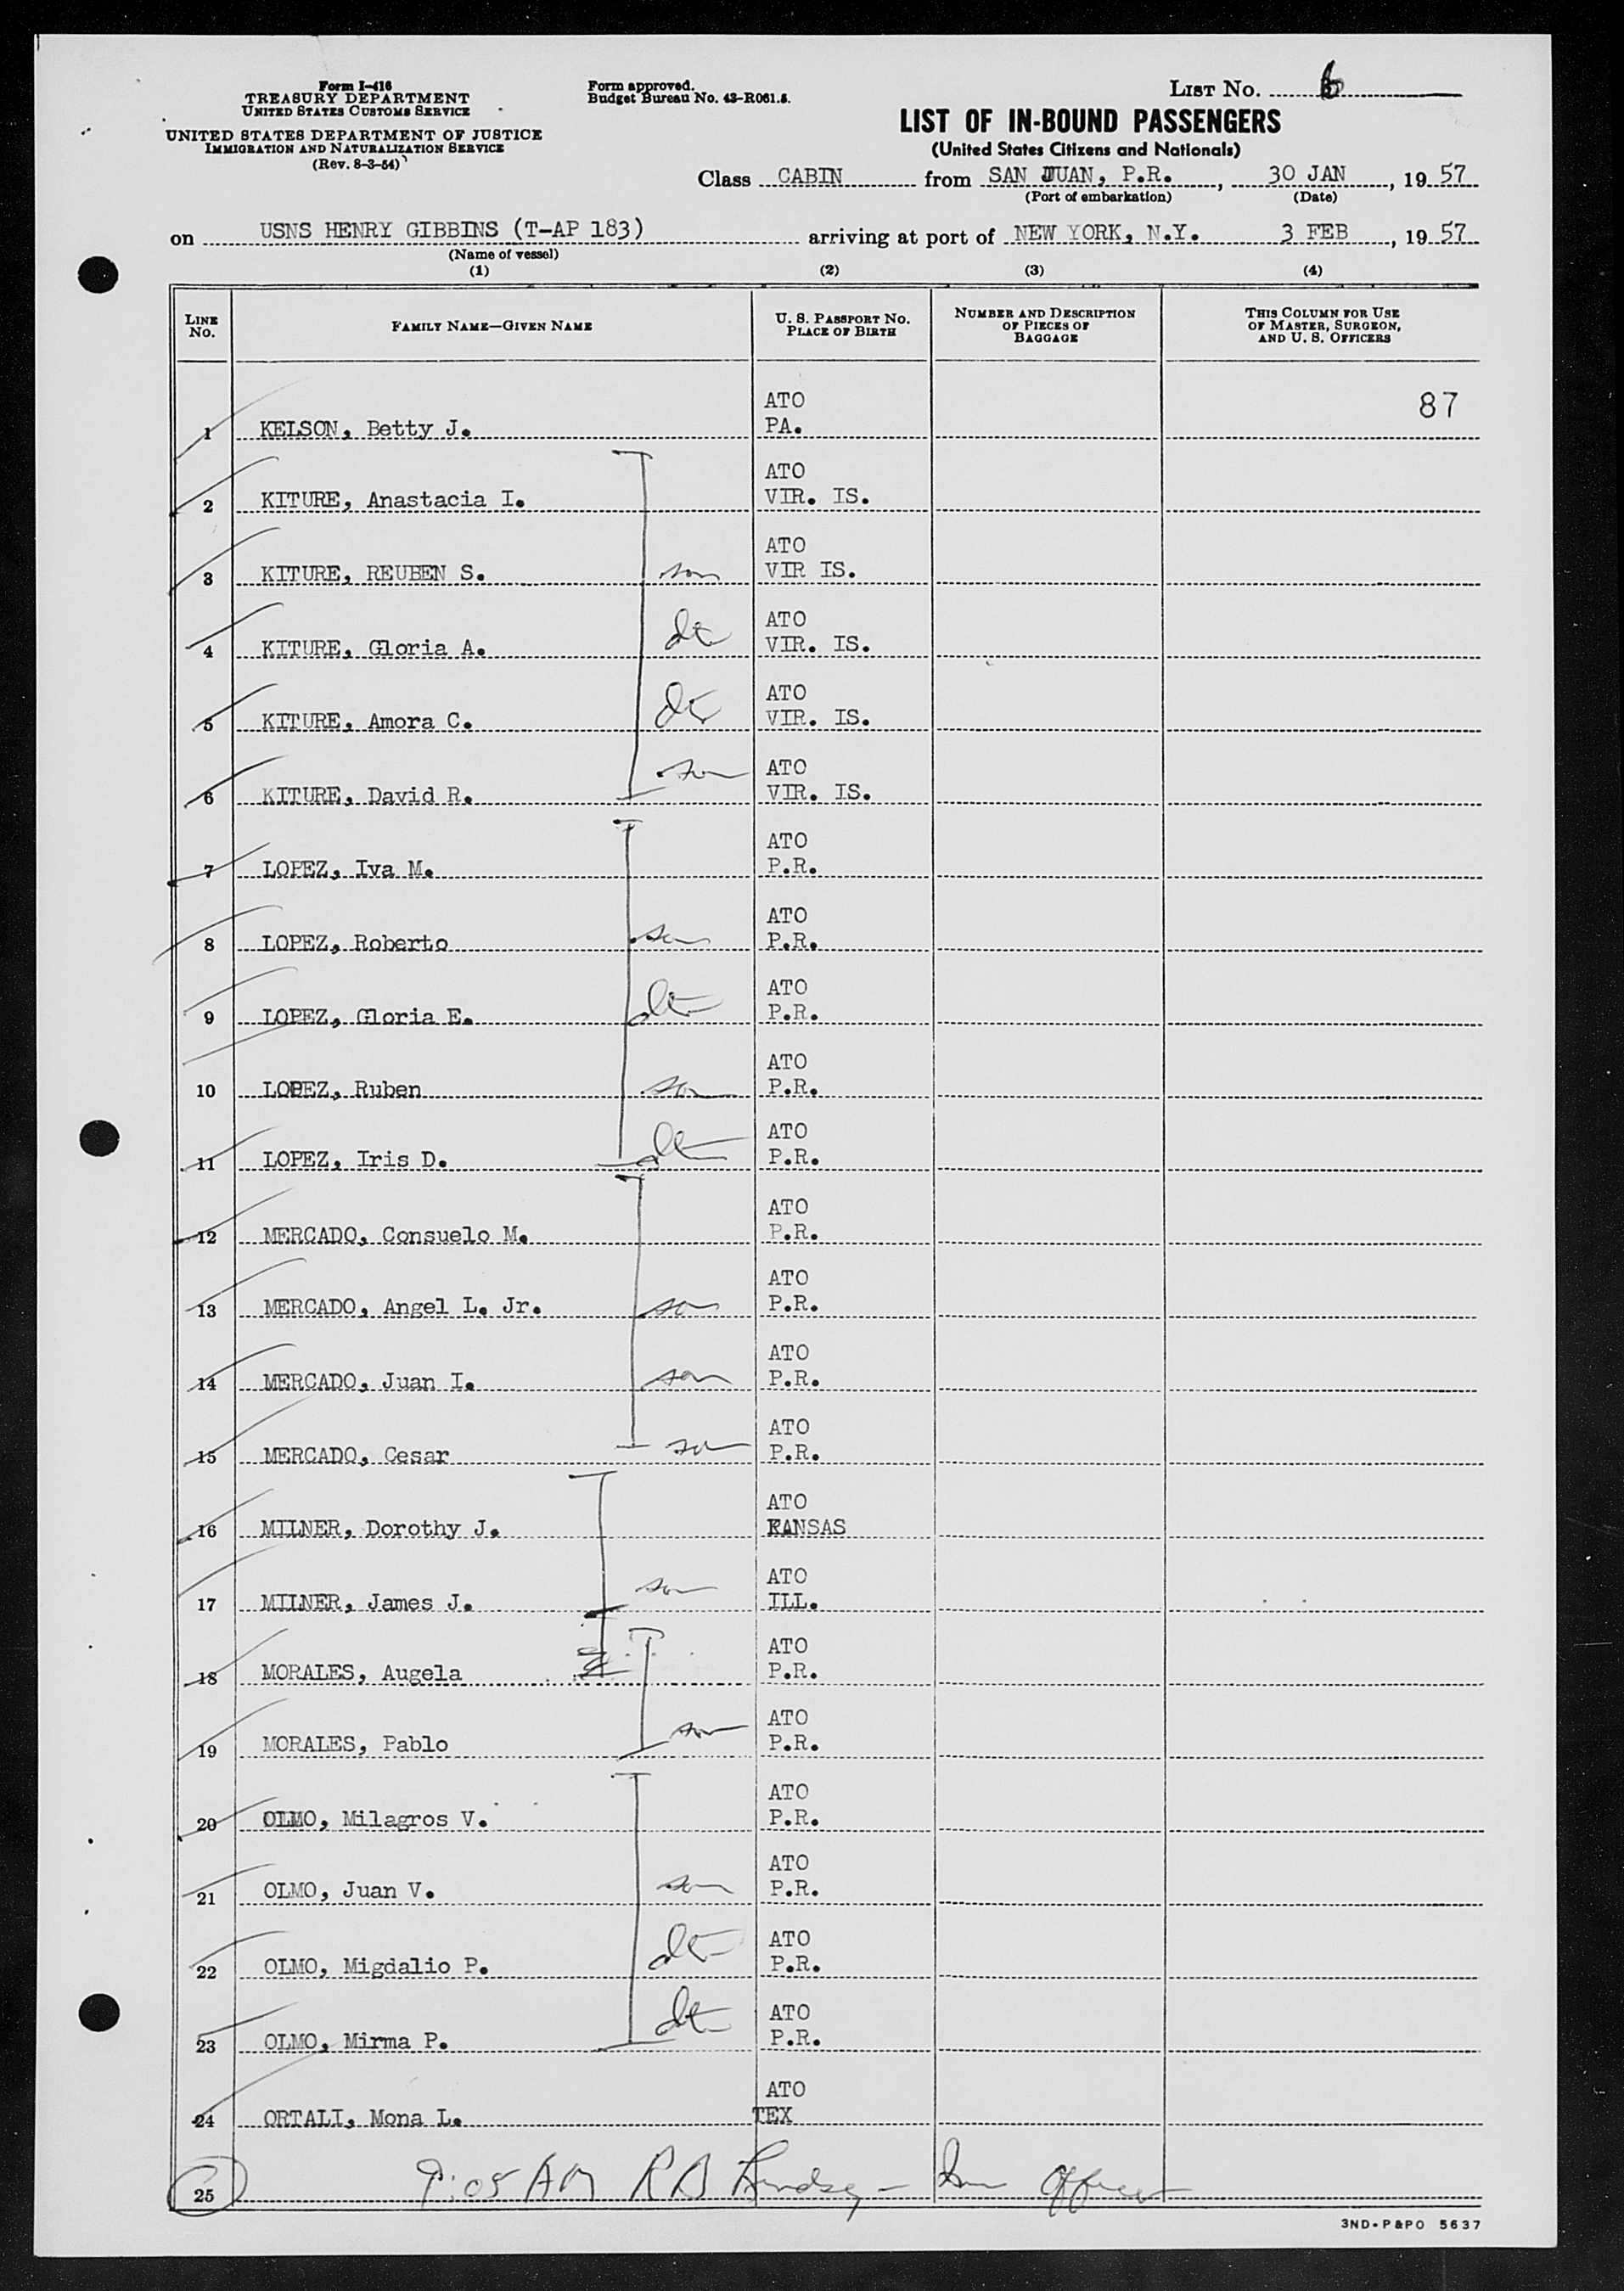 Form I-416
TREASURY DEPARTMENT
UNITED STATES CUSTOMS SERVICE
UNITED STATES DEPARTMENT OF JUSTICE
IMMIGRATION AND NATURALIZATION SERVICE
(Rev. 8-3-54)
Form approved.
Budget Bureau No. 43-R061.5.
LIST No. 6
LIST OF IN-BOUND PASSENGERS
(United States Citizens and Nationals)
Class CABIN from SAN JUAN, P.R., 30 JAN, 19 57
(Port of embarkation) (Date)
on USNS HENRY GIBBINS (T-AP 183) arriving at port of NEW YORK, N.Y. 3 FEB, 19 57
(Name of vessel)
(1) (2) (3) (4)
LINE No. FAMILY NAME—GIVEN NAME U. S. PASSPORT NO. PLACE OF BIRTH NUMBER AND DESCRIPTION OF PIECES OF BAGGAGE THIS COLUMN FOR USE OF MASTER, SURGEON, AND U. S. OFFICERS
ATO 87
1 KELSON, Betty J. PA.
ATO
2 KITURE, Anastacia I. VIR. IS.
ATO
3 KITURE, REUBEN S. son VIR IS.
ATO
4 KITURE, Gloria A. dt VIR. IS.
ATO
5 KITURE, Amora C. dt VIR. IS.
ATO
6 KITURE, David R. son VIR. IS.
ATO
7 LOPEZ, Iva M. P.R.
ATO
8 LOPEZ, Roberto son P.R.
ATO
9 LOPEZ, Gloria E. dt P.R.
ATO
10 LOPEZ, Ruben son P.R.
ATO
11 LOPEZ, Iris D. dt P.R.
ATO
12 MERCADO, Consuelo M. P.R.
ATO
13 MERCADO, Angel L. Jr. son P.R.
ATO
14 MERCADO, Juan I. son P.R.
ATO
15 MERCADO, Cesar son P.R.
ATO
16 MILNER, Dorothy J. KANSAS
ATO
17 MILNER, James J. son ILL.
ATO
18 MORALES, Augela P.R.
ATO
19 MORALES, Pablo son P.R.
ATO
20 OLMO, Milagros V. P.R.
ATO
21 OLMO, Juan V. son P.R.
ATO
22 OLMO, Migdalio P. dt P.R.
ATO
23 OLMO, Mirma P. dt P.R.
ATO
24 ORTALI, Mona L. TEX
25 9:05 AM R B Lindsey - Imm Officer
3ND-P&PO 5637